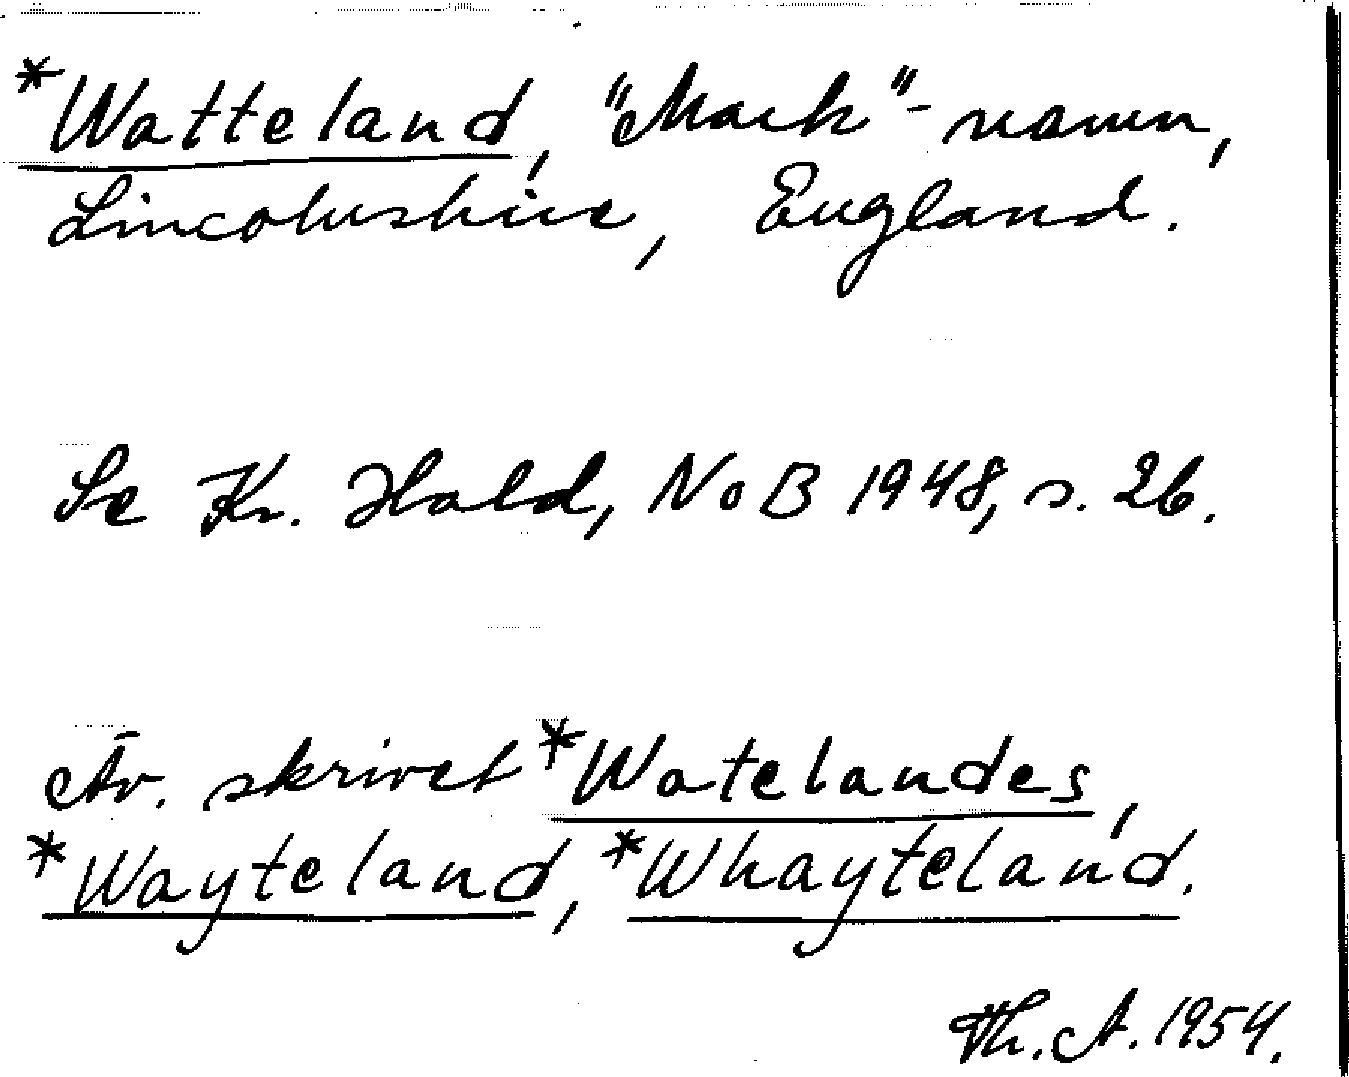 *Watteland, "Mark"-namn,
Lincolnshire, England.
Se Kr. Hald, NoB 1948, s. 26.
Äv. skrivet *Watelandes,
*Wayteland, *Whayteland.
Th. A. 1954.